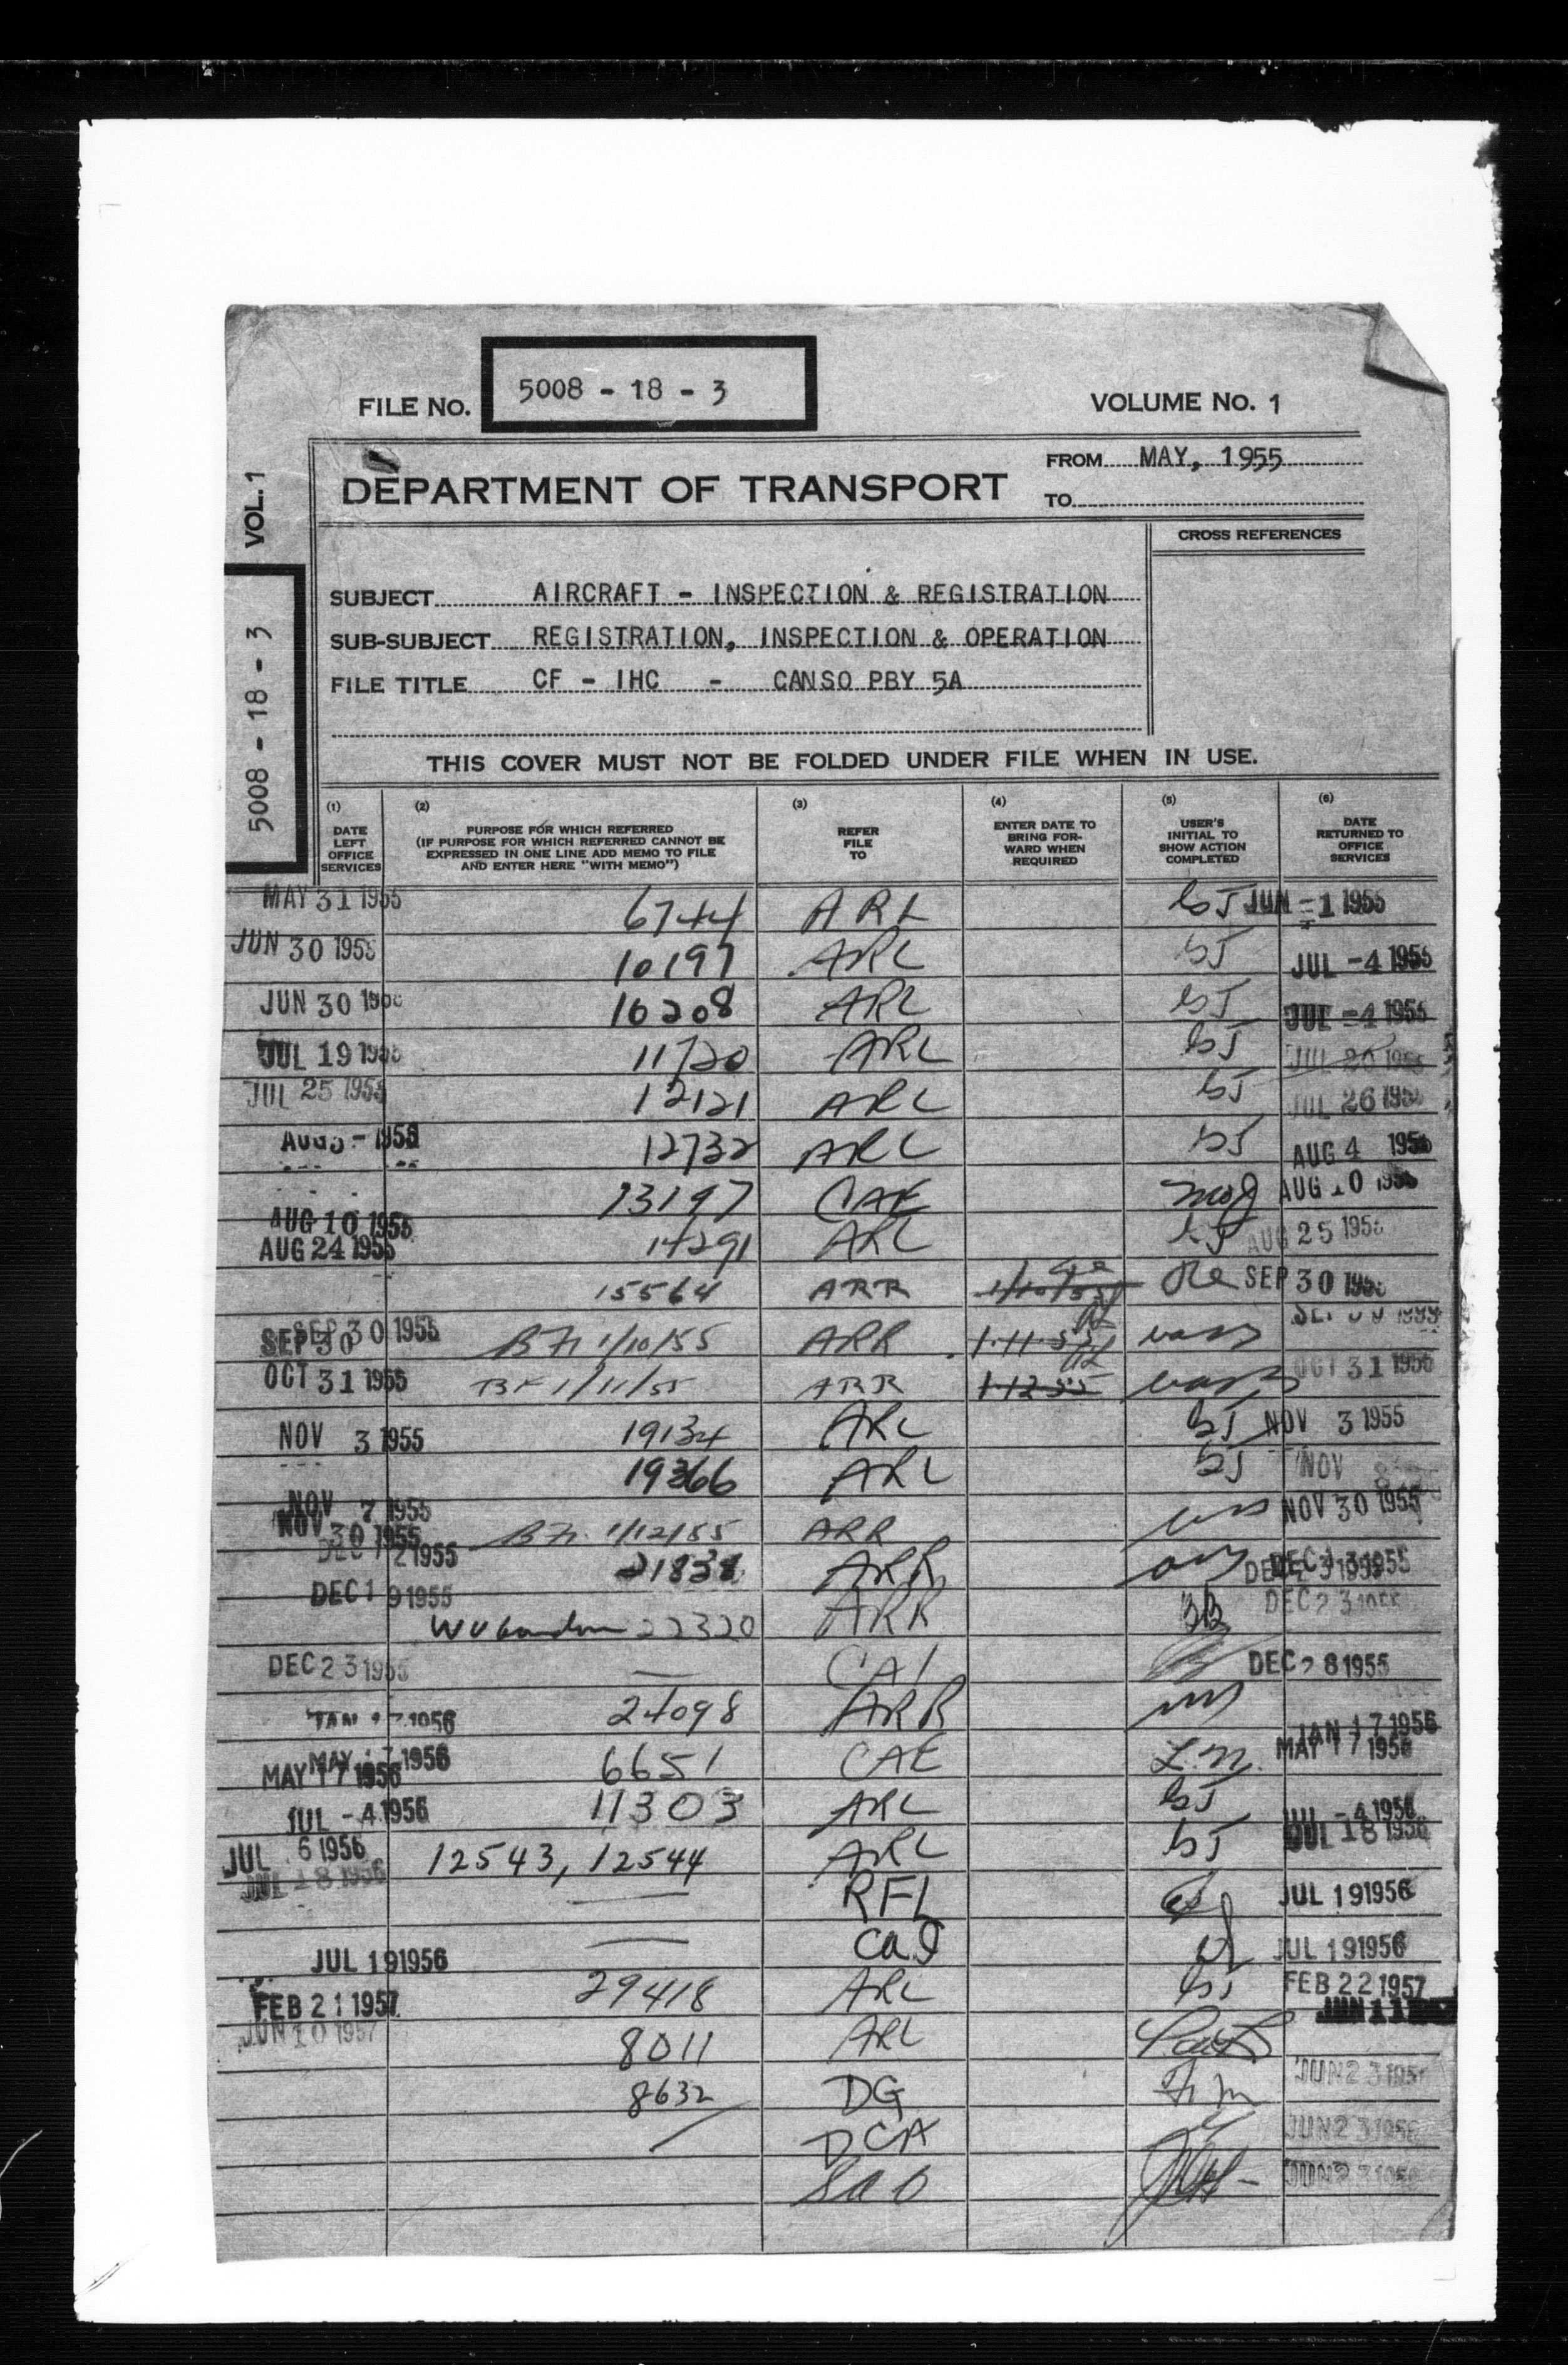 FILE NO. 5008 - 18 - 3
VOLUME NO. 1
VOL. 1
5008 - 18 - 3
DEPARTMENT OF TRANSPORT
FROM MAY, 1955
TO
CROSS REFERENCES
SUBJECT AIRCRAFT - INSPECTION & REGISTRATION
SUB-SUBJECT REGISTRATION, INSPECTION & OPERATION
FILE TITLE CF - IHC - CANSO PBY 5A
THIS COVER MUST NOT BE FOLDED UNDER FILE WHEN IN USE.
(1) DATE LEFT OFFICE SERVICES
(2) PURPOSE FOR WHICH REFERRED (IF PURPOSE FOR WHICH REFERRED CANNOT BE EXPRESSED IN ONE LINE ADD MEMO TO FILE AND ENTER HERE "WITH MEMO")
(3) REFER FILE TO
(4) ENTER DATE TO BRING FORWARD WHEN REQUIRED
(5) USER'S INITIAL TO SHOW ACTION COMPLETED
(6) DATE RETURNED TO OFFICE SERVICES
MAY 31 1955 6744 ARL JUN -1 1955
JUN 30 1955 10197 ARL JUL -4 1955
JUN 30 10208 ARL JUL -4 1955
JUL 19 1955 11720 ARL
JUL 25 1955 12121 ARL JUL 26 1955
12732 ARL AUG 4 1955
AUG 10 1955 13197 CAE AUG 10 1955
AUG 24 1955 14291 ARL AUG 25 1955
15564 ARR SEP 30 1955
SEP 30 1955 BF 1/10/55 ARR 1-11-55
OCT 31 1955 BF 1/11/55 ARR 1-12-55 OCT 31 1955
NOV 3 1955 19134 ARL NOV 3 1955
NOV 7 1955 19366 ARL NOV
NOV 30 1955 BF 1/12/55 ARR NOV 30 1955
DEC 12 1955 21838 ARR DEC 13 1955
DEC 19 1955 22320 ARR DEC 23
DEC 23 1955 CAI DEC 28 1955
1956 24098 ARR JAN 17 1956
MAY 17 1956 6651 CAE L.M. MAY 17 1956
JUL -4 1956 11303 ARL JUL -4 1956
JUL 6 1956 12543, 12544 ARL JUL 18 1956
JUL 18 1956 RFL JUL 19 1956
JUL 19 1956 CAI JUL 19 1956
FEB 21 1957 29418 ARL FEB 22 1957
JUN 10 1957 8011 ARL JUN 11
8632 DG JUN 23
DCA JUN 23
JUN 23